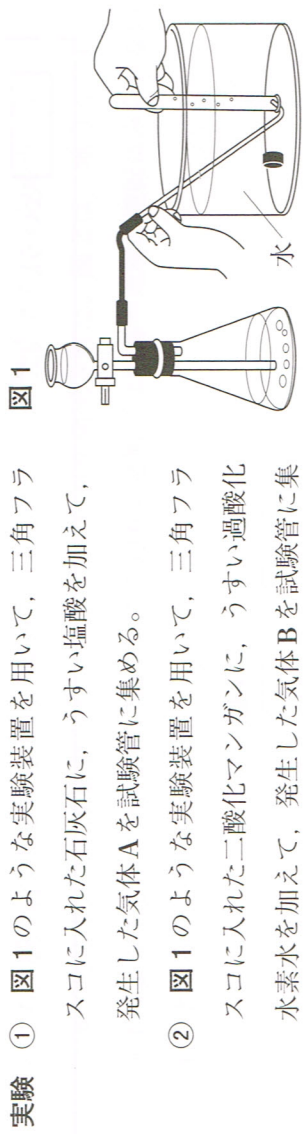 実験 ① 図1のような実験装置を用いて，三角フラ
スコに入れた石灰石に，うすい塩酸を加えて，
発生した気体Aを試験管に集める。
② 図1のような実験装置を用いて，三角フラ
スコに入れた二酸化マンガンに，うすい過酸化
水素水を加えて，発生した気体Bを試験管に集
図1
水